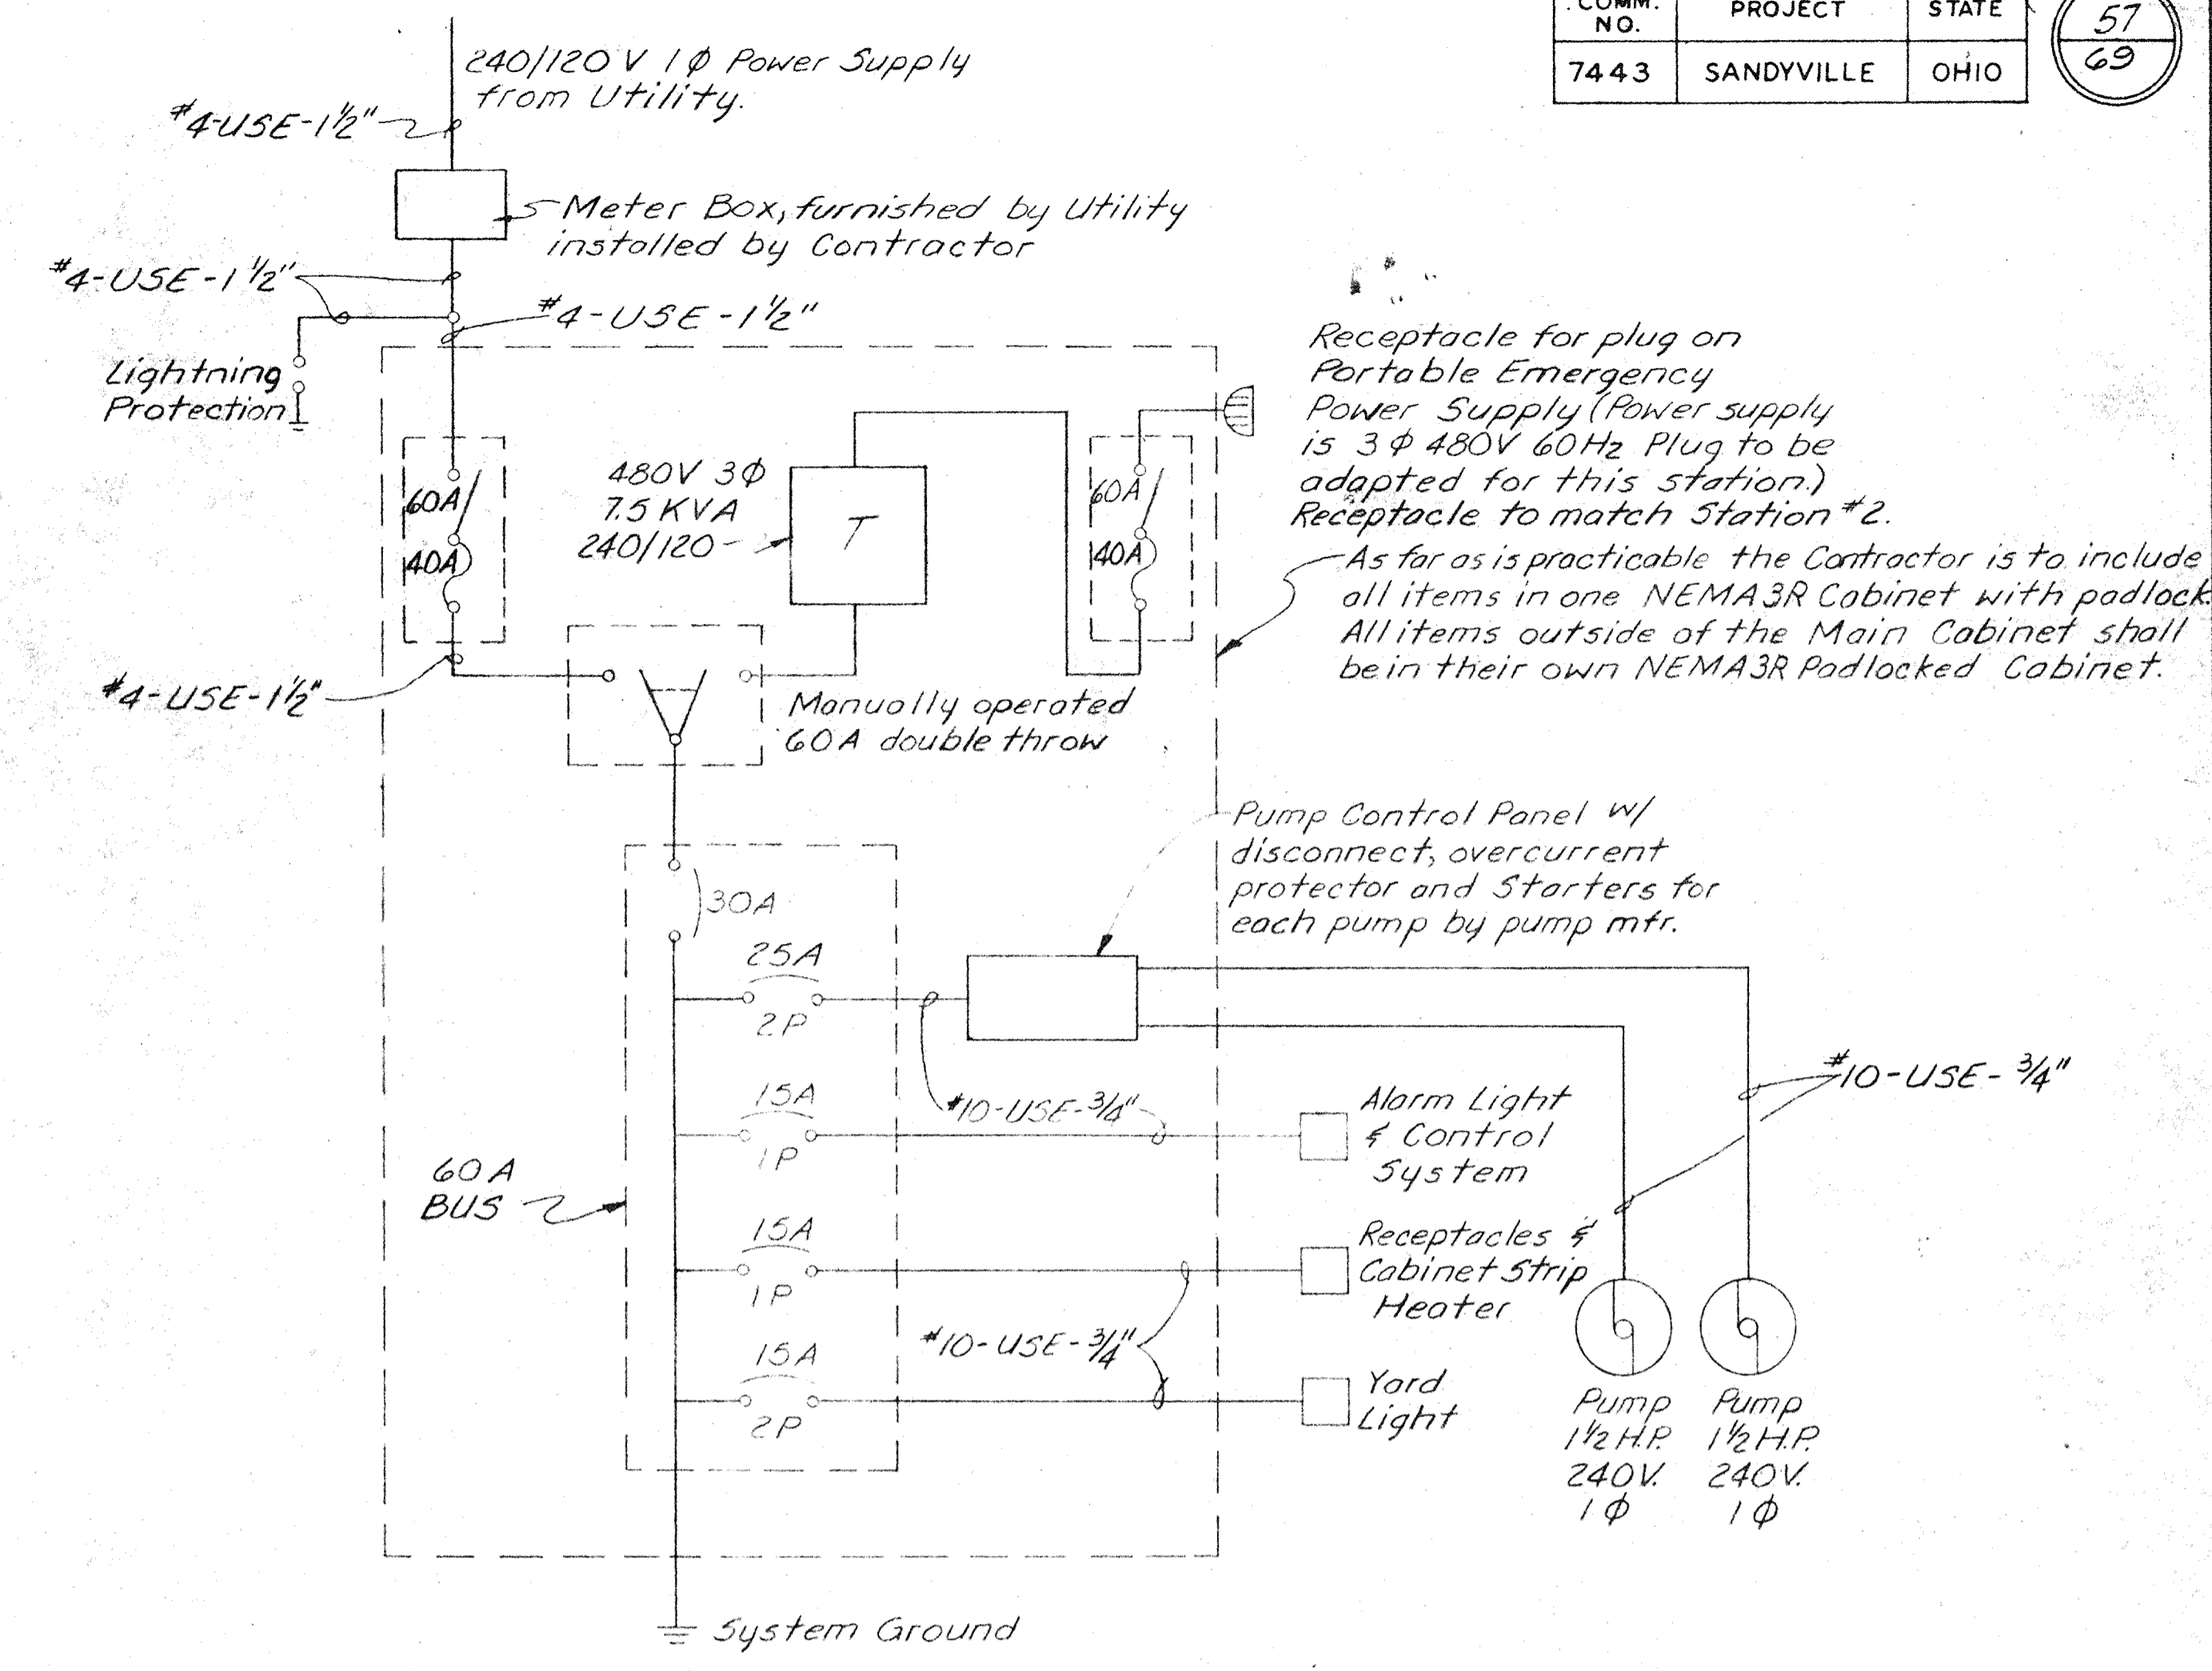 COMM. NO.
PROJECT
STATE
7443
SANDYVILLE
OHIO
57
69
240/120 V 1 Φ Power Supply
from Utility.
#4-USE-1½"
Meter Box, furnished by Utility
installed by Contractor
#4-USE-1½"
#4-USE-1½"
Lightning
Protection
60A
40A
480V 3Φ
7.5 KVA
240/120
T
60A
40A
Receptacle for plug on
Portable Emergency
Power Supply (Power supply
is 3 Φ 480V 60Hz Plug to be
adapted for this station.)
Receptacle to match Station #2.
As far as is practicable the Contractor is to include
all items in one NEMA3R Cabinet with padlock.
All items outside of the Main Cabinet shall
be in their own NEMA3R Padlocked Cabinet.
#4-USE-1½"
Manually operated
60A double throw
Pump Control Panel w/
disconnect, overcurrent
protector and Starters for
each pump by pump mfr.
30A
25A
2P
#10-USE-¾"
15A
1P
#10-USE-¾"
Alarm Light
& Control
System
60A
BUS
15A
1P
Receptacles &
Cabinet Strip
Heater
#10-USE-¾"
15A
2P
Yard
Light
Pump
1½ H.P.
240V.
1 Φ
Pump
1½ H.P.
240V.
1 Φ
System Ground